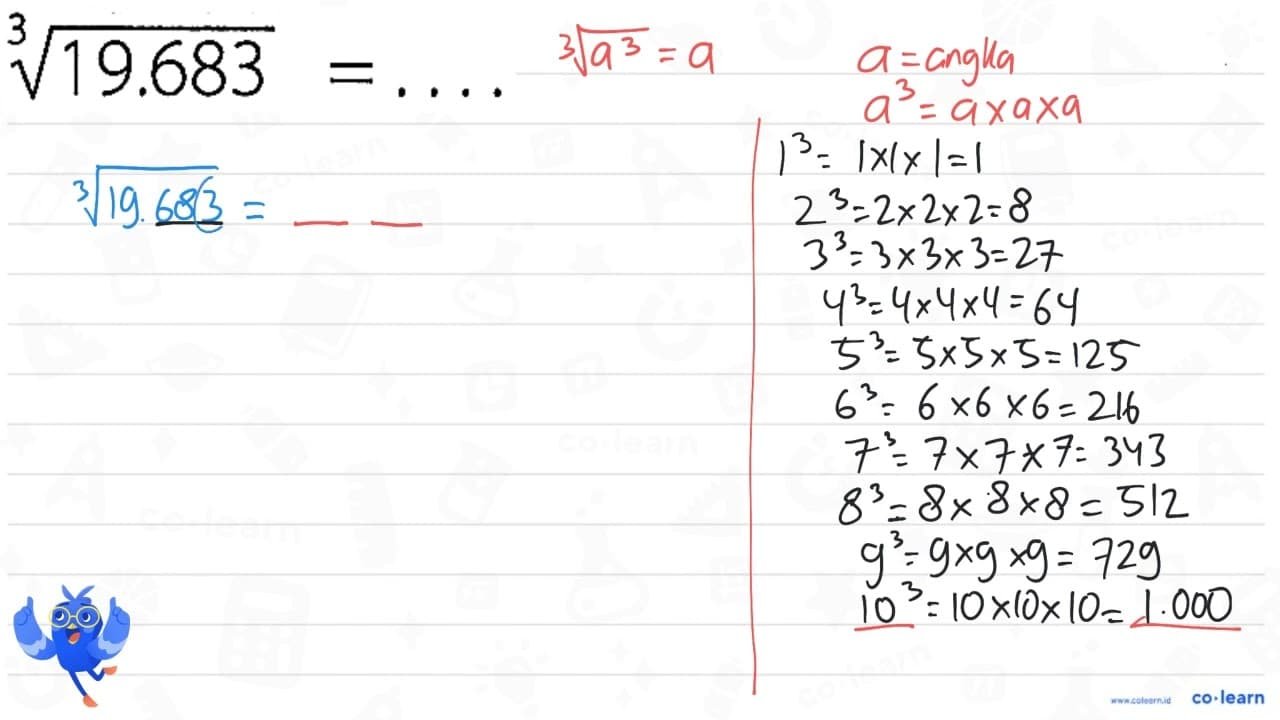 ∛19.683 = ....
∛a³ = a
a = angka
a³ = a x a x a
∛19.683 = _ _
1³ = 1x1x1=1
2³=2x2x2=8
3³=3x3x3=27
4³=4x4x4=64
5³=5x5x5=125
6³= 6x6x6=216
7³= 7x7x7= 343
8³= 8x8x8= 512
9³=9x9x9= 729
10³=10x10x10= 1.000
www.colearn.id co·learn